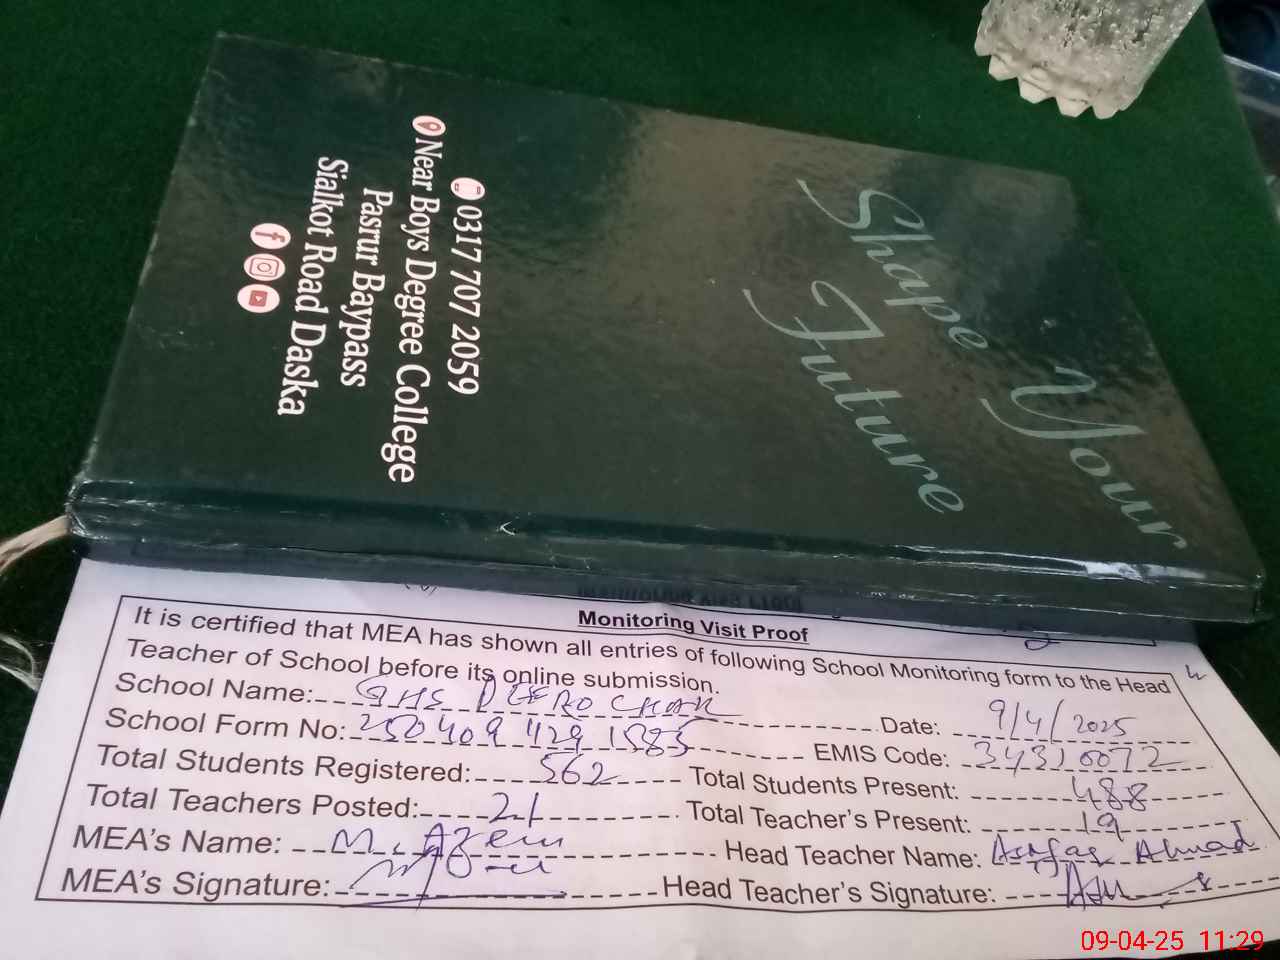 Shape Your
Future
0317 707 2059
Near Boys Degree College
Pasrur Baypass
Sialkot Road Daska
Monitoring Visit Proof
It is certified that MEA has shown all entries of following School Monitoring form to the Head
Teacher of School before its online submission.
School Name: GHS Date: 9/4/2025
School Form No: 250409 429 1585 EMIS Code: 34310072
Total Students Registered: 562 Total Students Present: 488
Total Teachers Posted: 21 Total Teacher's Present: 19
MEA's Name: M. Azeem Head Teacher Name: Ashfaq Ahmad
MEA's Signature: Head Teacher's Signature:
09-04-25 11:29